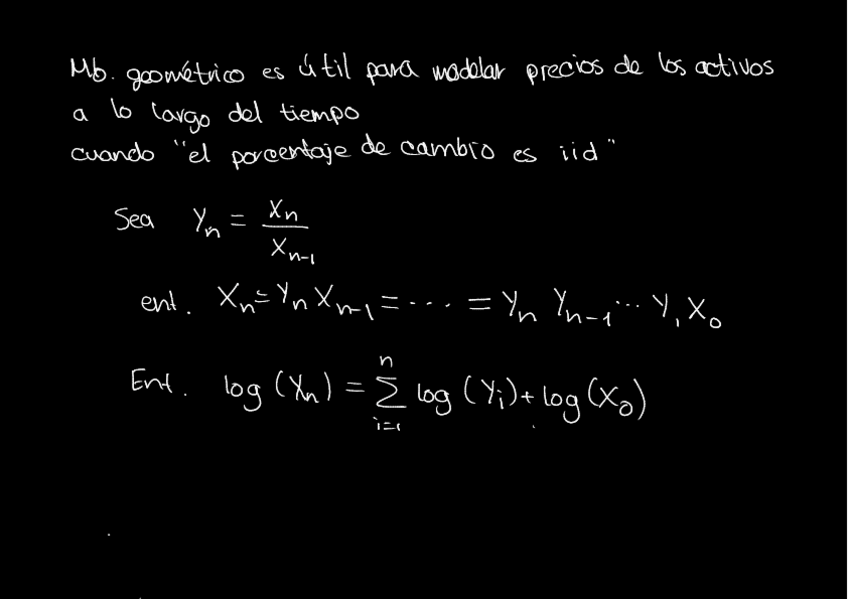 Mb. geométrico es útil para modelar precios de los activos
a lo largo del tiempo
cuando "el porcentaje de cambio es iid"
Sea Yn = Xn / Xn-1
ent. Xn = Yn Xn-1 = ... = Yn Yn-1 ... Y1 X0
Ent. log (Xn) = Σ_{i=1}^{n} log (Yi) + log (X0)